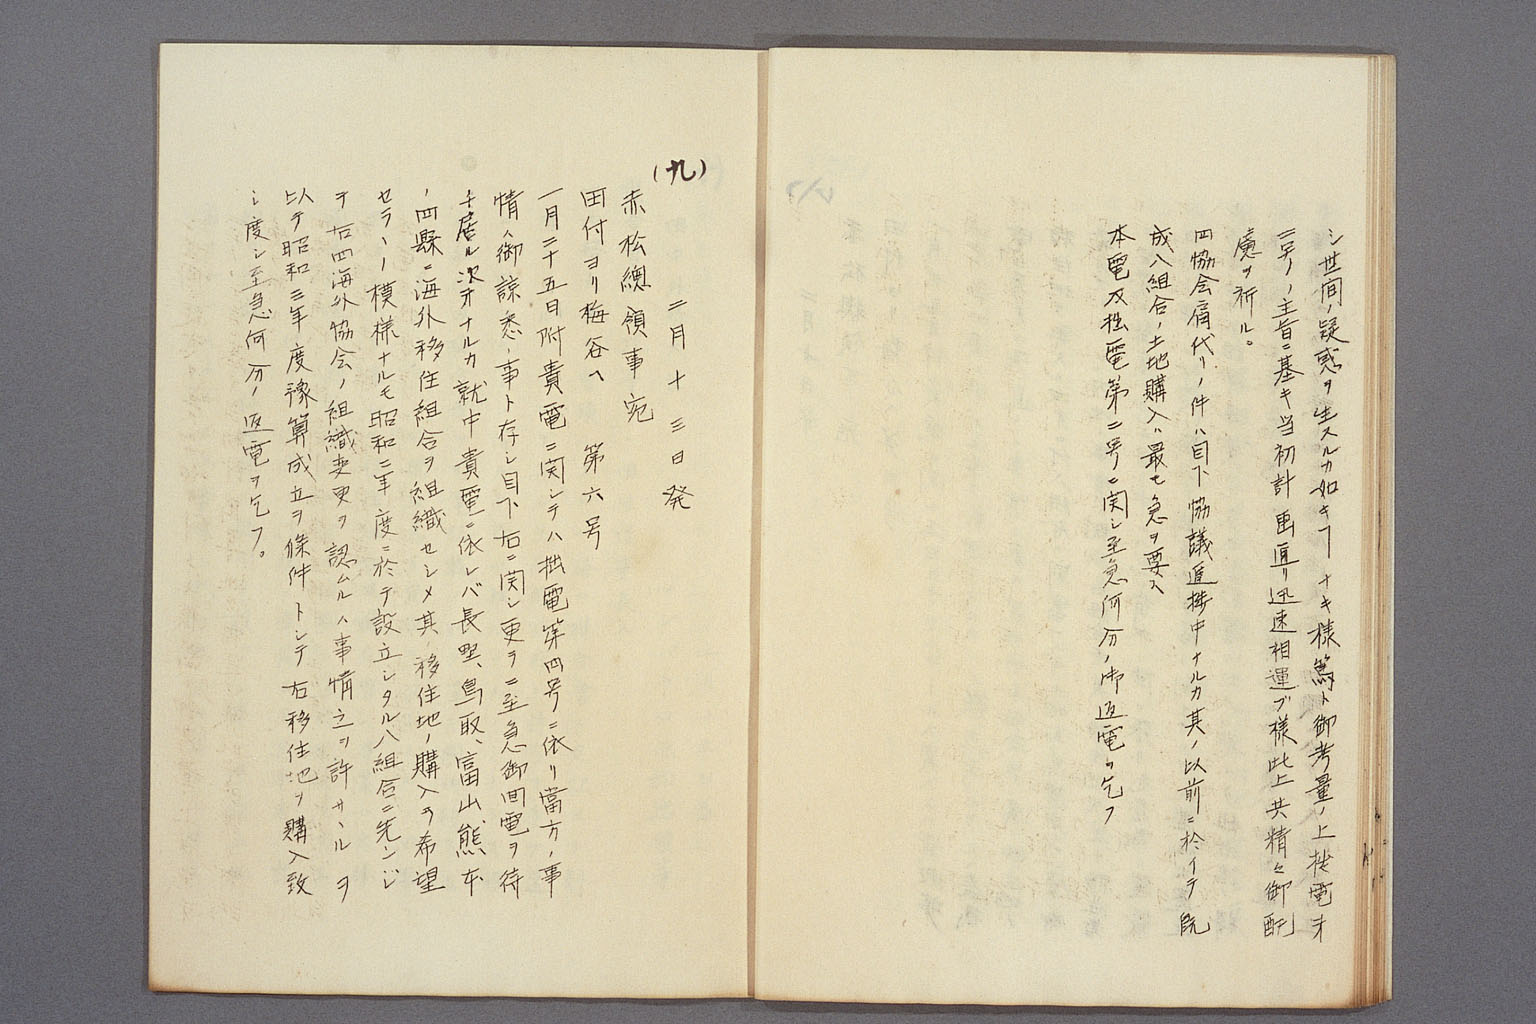 シ世間ノ疑惑ヲ生スルカ如キヿナキ様篤ト御考量ノ上拙電才
二号ノ主旨ニ基キ当初計画通リ迅速相運ブ様此上共精々御配
慮ヲ祈ル。
四協会肩代リノ件ハ目下協議進捗中ナルカ其ノ以前ニ於イテ既
成八組合ノ土地購入ハ最モ急ヲ要ス
本電及拙電第二号ニ関シ至急何分ノ御返電ヲ乞フ
(九)
二月十三日発
赤松總領事宛
田付ヨリ梅谷ヘ 第六号
一月二十五日附貴電ニ関シテハ拙電第四号ニ依リ當方ノ事
情ハ御諒悉ノ事ト存シ目下右ニ関シ更ラニ至急御回電ヲ待
チ居ル次才ナルカ就中貴電ニ依レバ長野、鳥取、富山、熊本
ノ四縣ニ海外移住組合ヲ組織セシメ其移住地ノ購入ヲ希望
セラルヽ模様ナルモ昭和二年度ニ於テ設立シタル八組合ニ先ンジ
テ右四海外協会ノ組織変更ヲ認ムルハ事情之ヲ許サヽルヲ
以テ昭和三年度豫算成立ヲ條件トシテ右移住地ヲ購入致
シ度シ至急何分ノ返電ヲ乞フ。